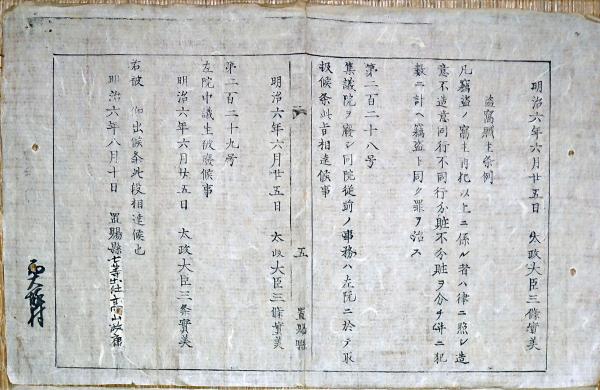 明治六年六月廿五日　太政大臣三條實美
盗窩職主条例
凡竊盗ノ窩主再犯以上ニ係ル者ハ律ニ照シ造
意不造意同行不同行分贓不分贓ヲ分チ併ニ犯
数ニ計ヘ竊盗ト同ク罪ヲ治ス
第二百二十八号
集議院ヲ廃シ同院従前ノ事務ハ左院ニ於テ取
扱候条此旨相達候事
明治六年六月廿五日　太政大臣三條實美
五　置賜縣
第二百二十九号
左院中議生被廃候事
明治六年六月廿五日　太政大臣三条實美
右被　仰出候条此段相達候也
明治六年八月十日　置賜縣七等出仕高山政康